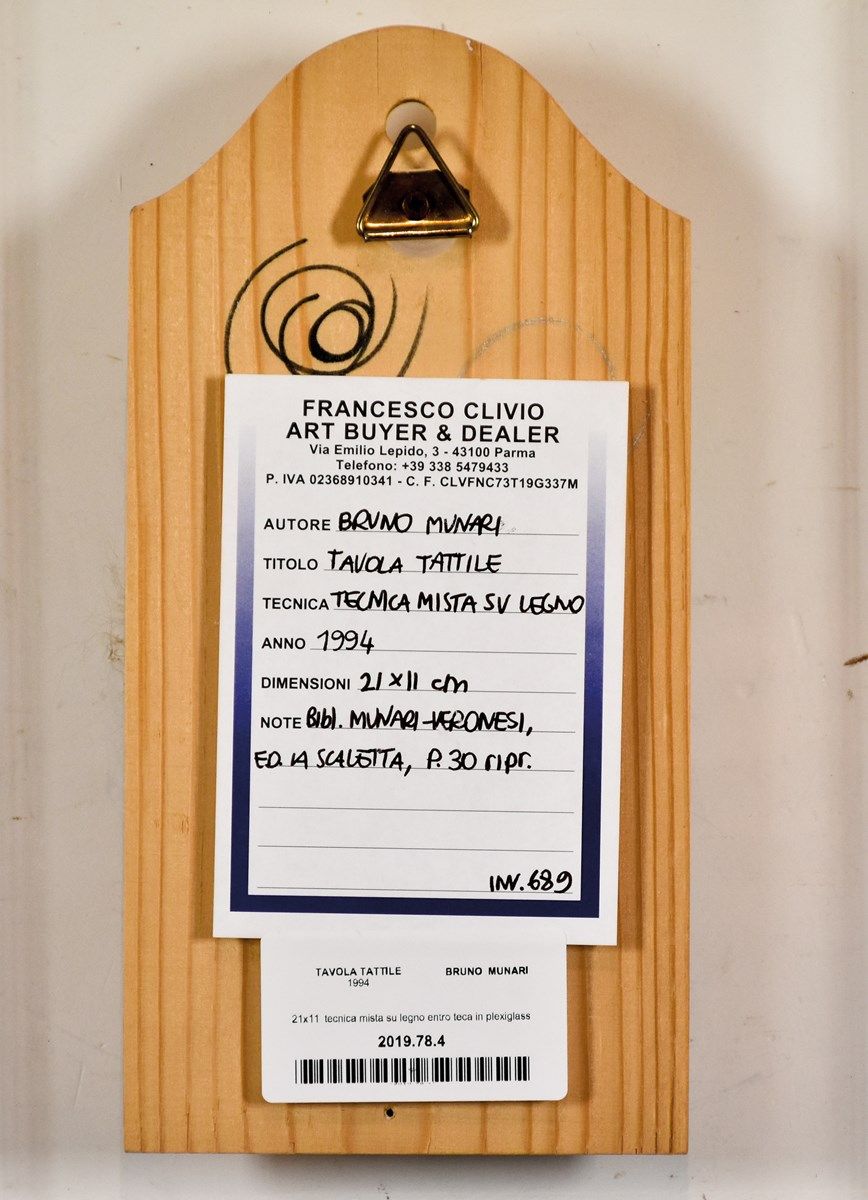 FRANCESCO CLIVIO
ART BUYER & DEALER
Via Emilio Lepido, 3 - 43100 Parma
Telefono: +39 338 5479433
P. IVA 02368910341 - C. F. CLVFNC73T19G337M
AUTORE BRUNO MUNARI
TITOLO TAVOLA TATTILE
TECNICA TECNICA MISTA SU LEGNO
ANNO 1994
DIMENSIONI 21×11 cm
NOTE Bibl. MUNARI-VERONESI,
ED. LA SCALETTA, P. 30 ripr.
INV. 689
TAVOLA TATTILE BRUNO MUNARI
1994
21x11 tecnica mista su legno entro teca in plexiglass
2019.78.4